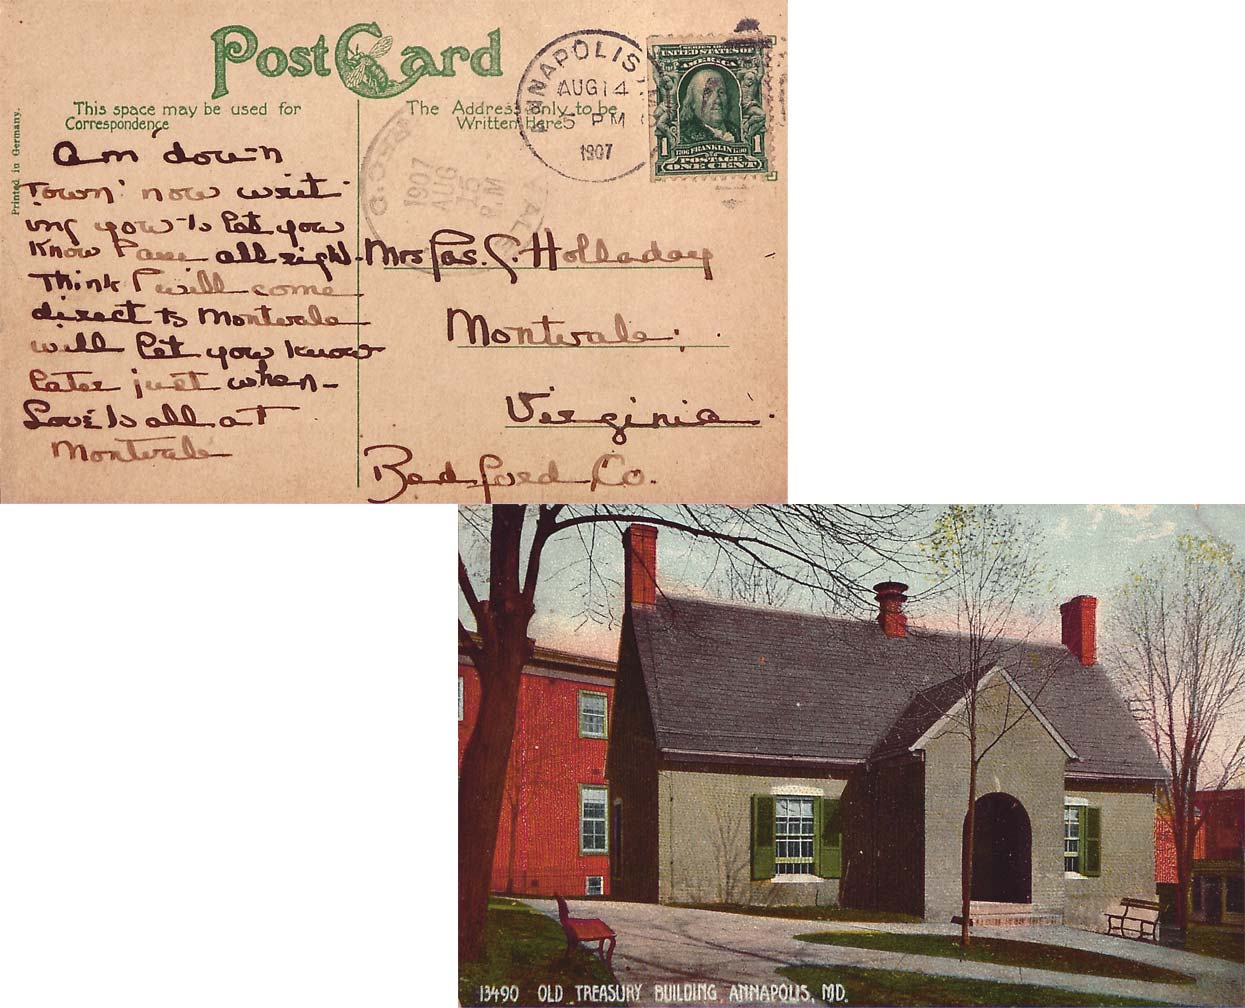 Post Card
This space may be used for
Correspondence
The Address only to be
Written Here
Printed in Germany.
ANNAPOLIS,
AUG 14
5 PM
1907
SERIES 1902
UNITED STATES OF
AMERICA
1 1
1706 FRANKLIN 1790
POSTAGE
ONE CENT
REC'D.
1907
AUG
15
P.M.
Am down
Town now writ
ing you to let you
Know I am all right.
Think I will come
direct to Montvale
will let you know
later just when -
Love to all at
Montvale
Mrs Jas. G. Holladay
Montvale;
Virginia.
Bedford Co.
13490 OLD TREASURY BUILDING, ANNAPOLIS, MD.